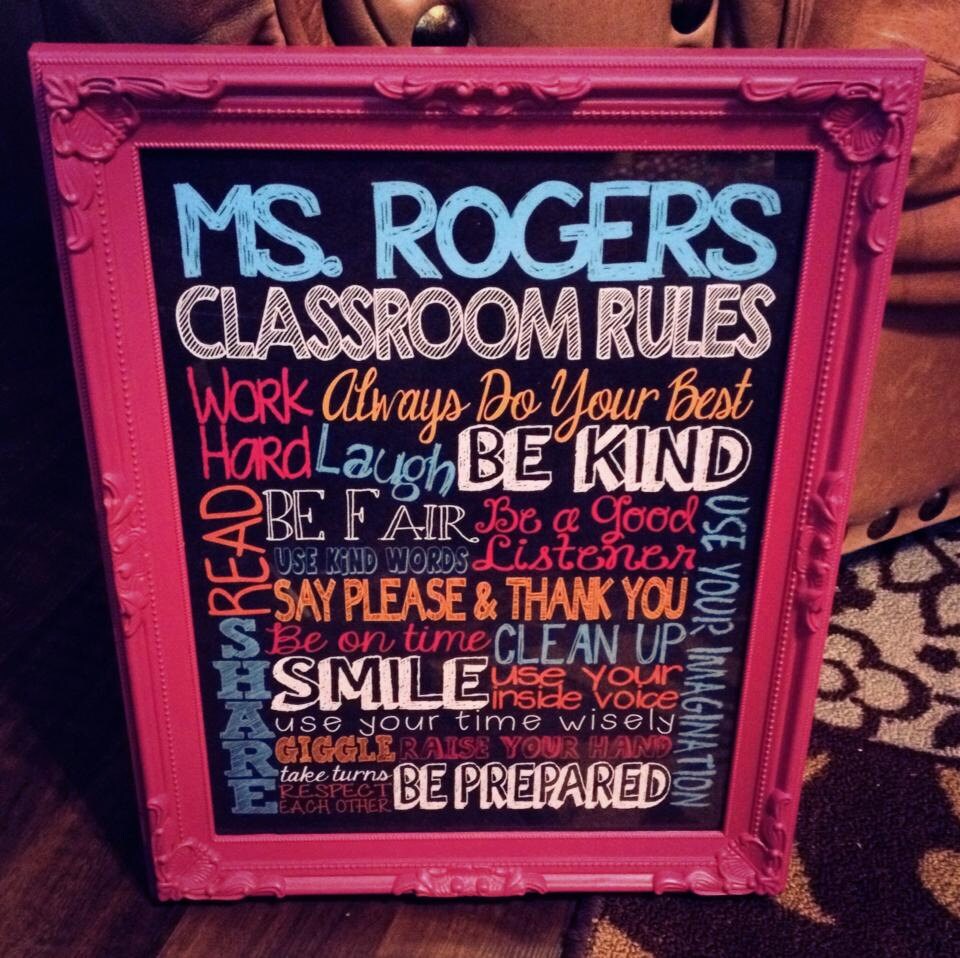 MS. ROGERS
CLASSROOM RULES
WORK Always Do Your Best
HaRd Laugh BE KIND
READ
BE FAIR Be a Good
Listener
USE KIND WORDS
SAY PLEASE & THANK YOU
USE YOUR IMAGINATION
SHARE
Be on time CLEAN UP
SMILE use your
inside voice
use your time wisely
GIGGLE RAISE YOUR HAND
take turns BE PREPARED
RESPECT
EACH OTHER